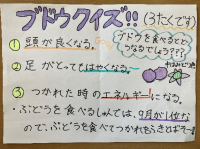 ブドウクイズ!! (3たくです)
ブドウを食べると
どうなるでしょう???
① 頭が良くなる。
② 足がとってもはやくなる。
③ つかれた時のエネルギーになる。
・ぶどうを食べるしゅんでは、9月が1位な
ので、ぶどうを食べてつかれをふきとばそー